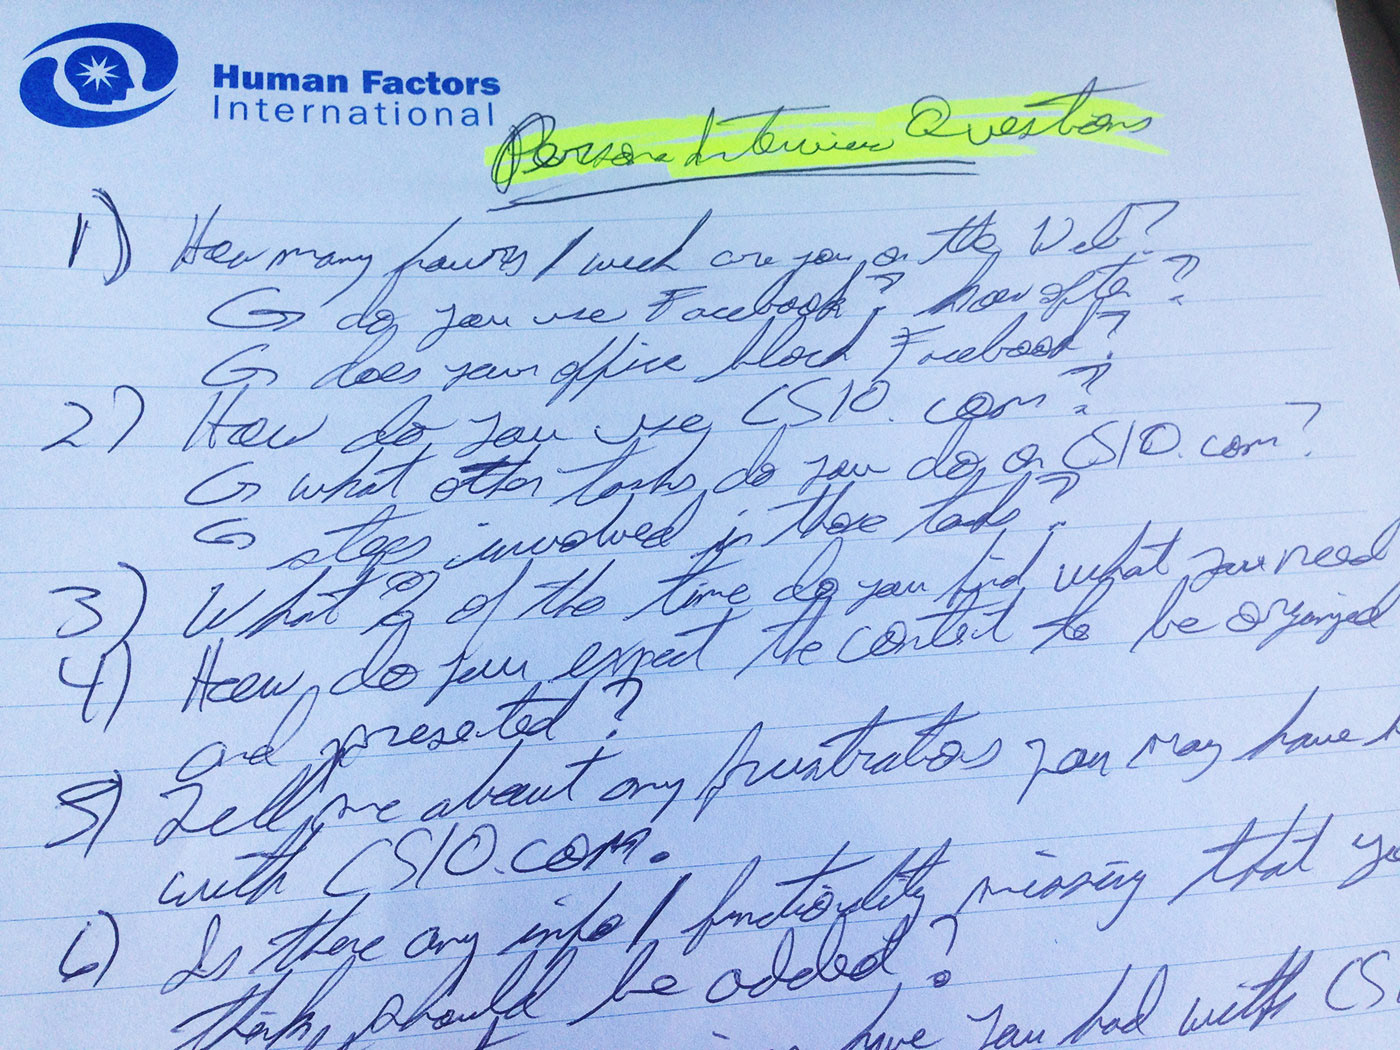 Human Factors
International
Persona Interview Questions
1) How many hours / week are you on the Web?
do you use Facebook? how often?
does your office block Facebook?
2) How do you use CSIO.com?
what other tasks do you do on CSIO.com?
steps involved in those tasks?
3) What % of the time do you find what you need
4) How do you expect the content to be organized
and presented?
5) Tell me about any frustrations you may have
with CSIO.com.
6) Is there any info / functionality missing that
think should be added?
have you had with CS